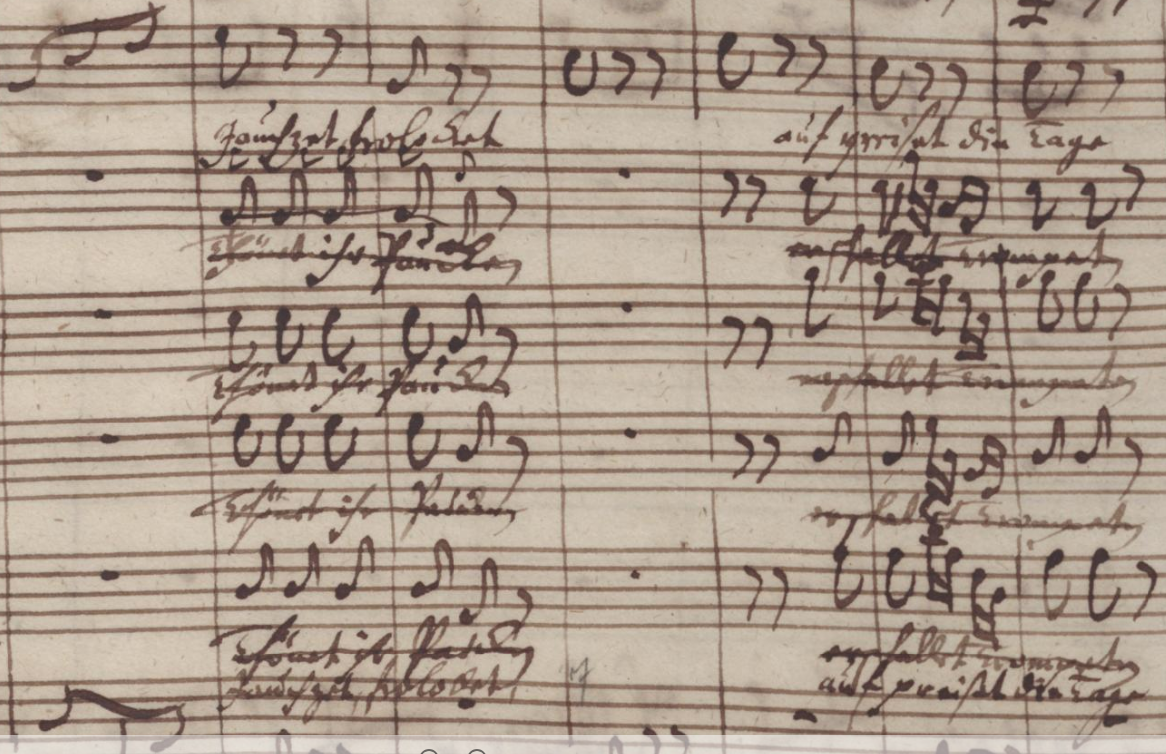 Jauchzet frolocket auf preißet die Tage
Thönet ihr Paucken erschallet trompeten
Thönet ihr Paucken erschallet trompeten
Thönet ihr Paucken erschallet trompeten
Thönet ihr Paucken erschallet trompeten
Jauchzet, frolocket auf preißet die Tage